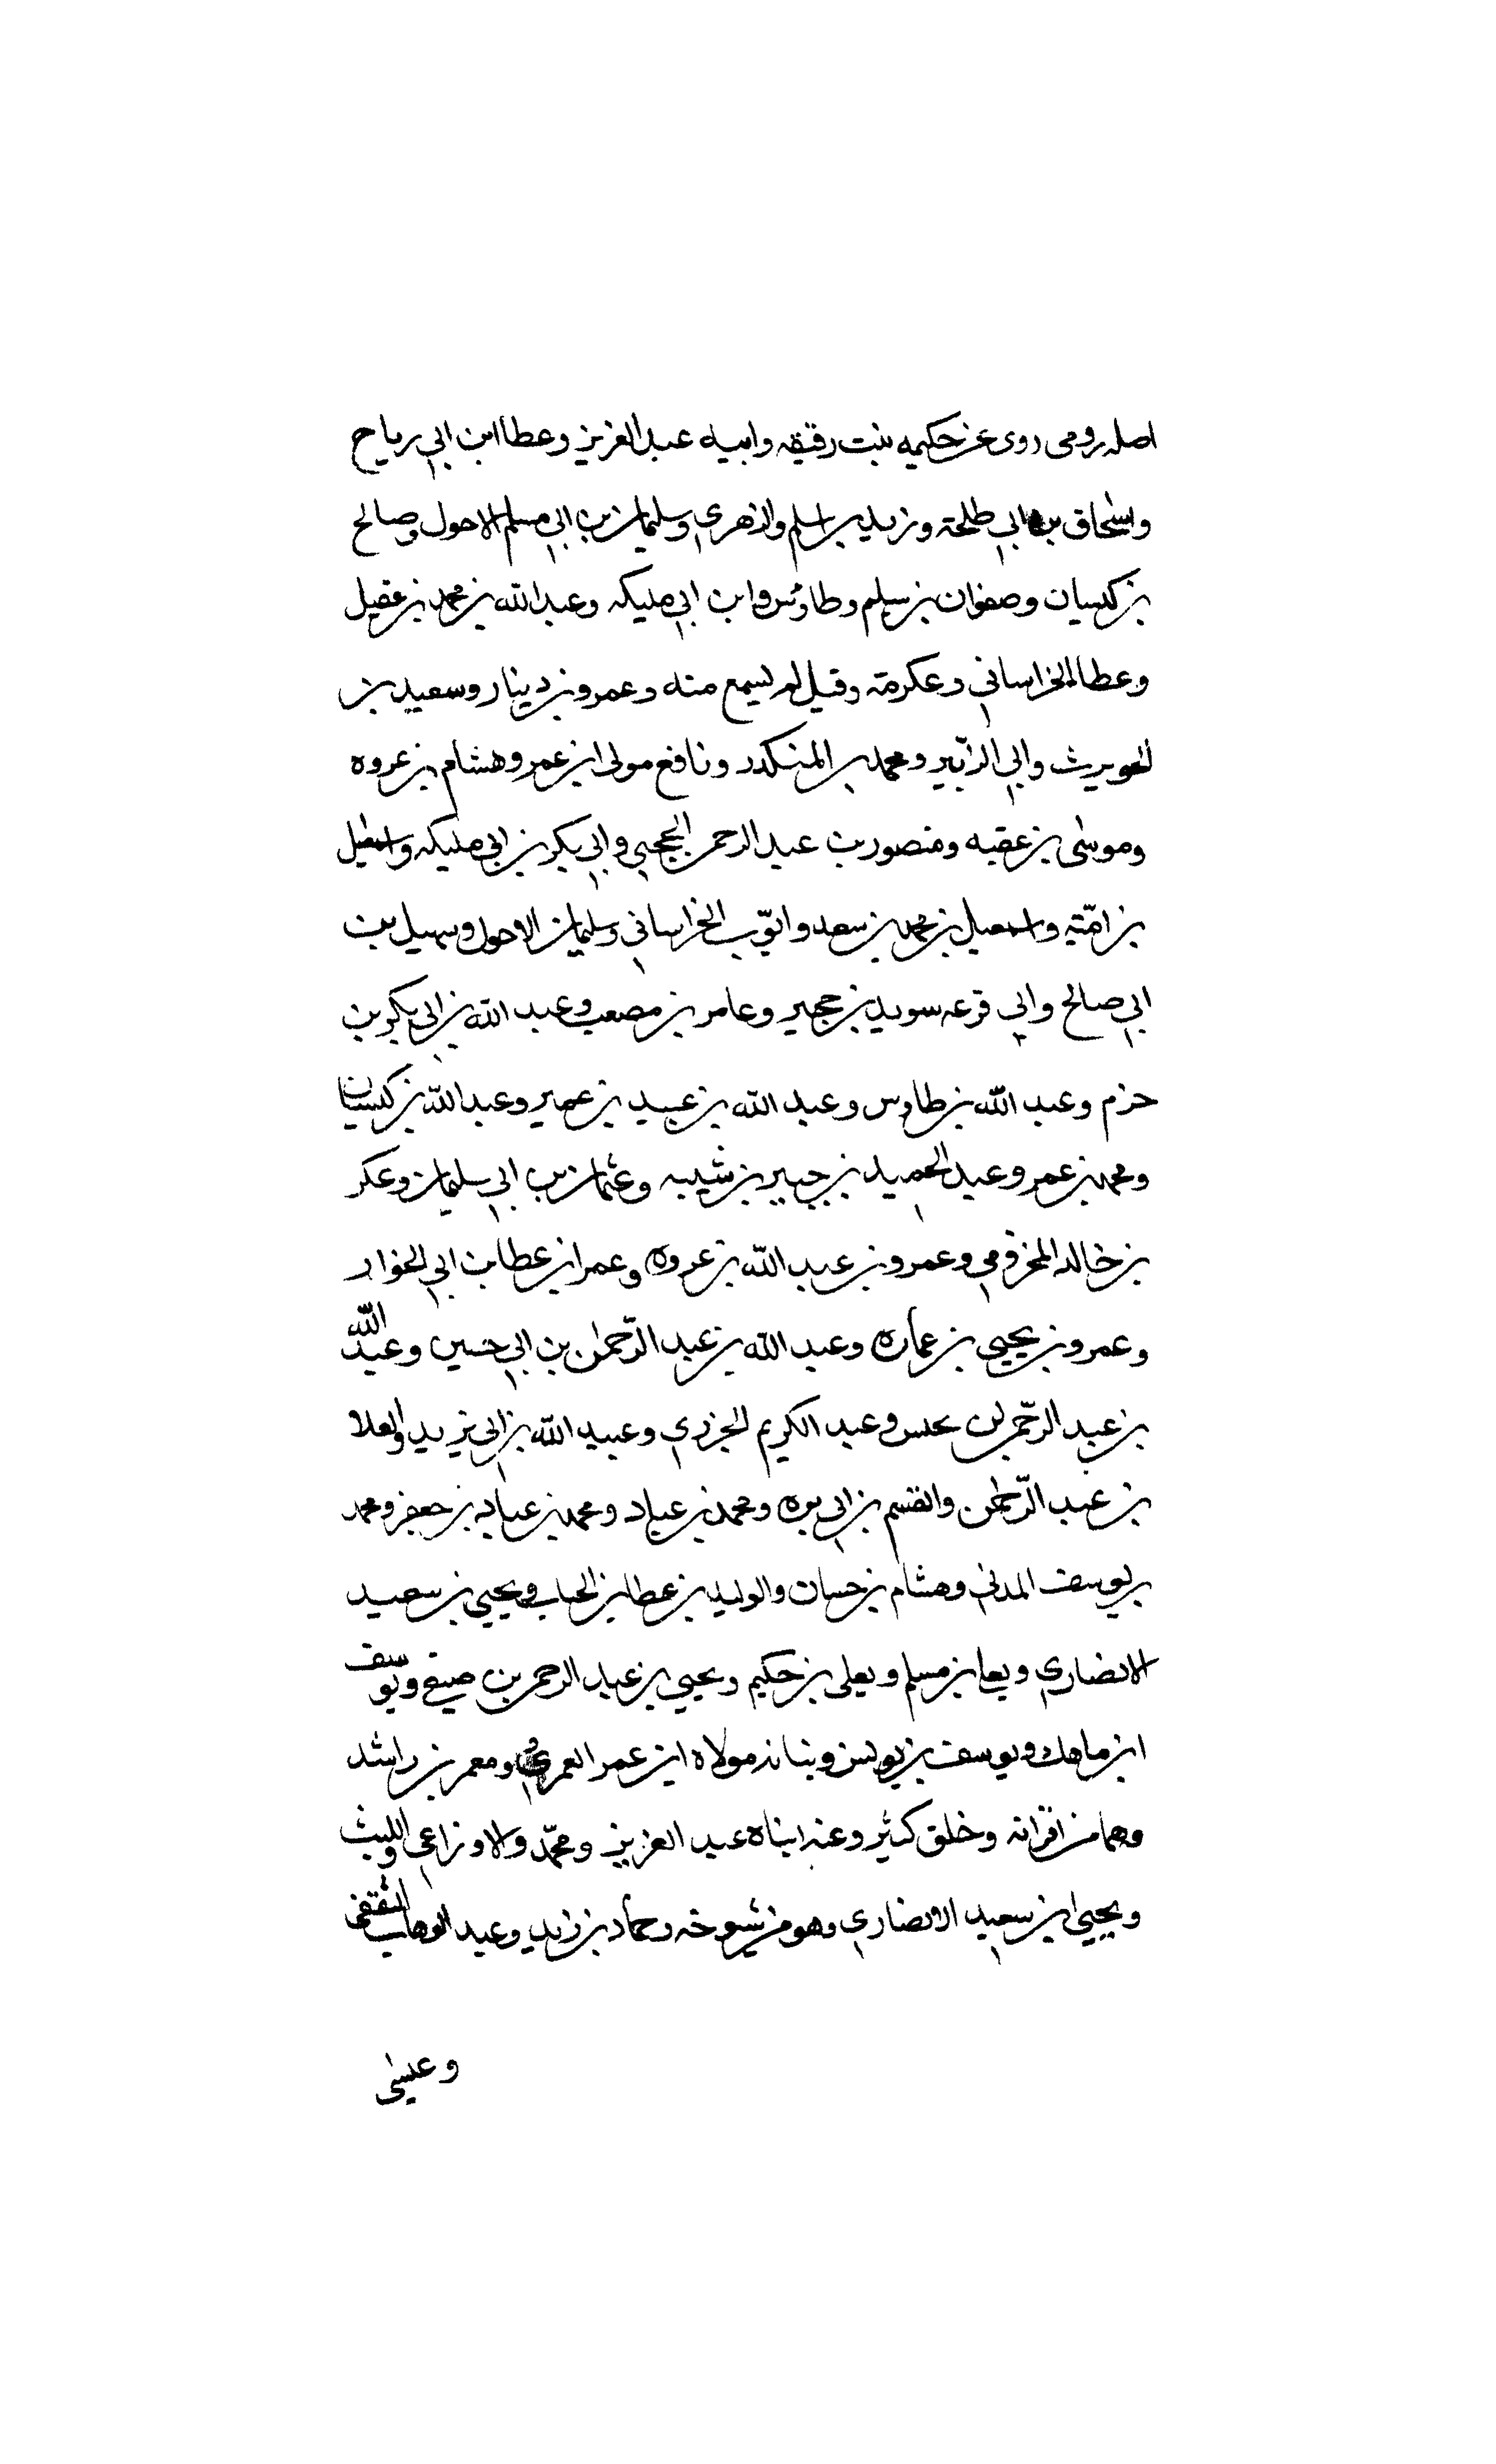 اصله رومى روى عن حكيمه بنت رقيقه وابيه عبد العزيز وعطا ابن ابي رباح
واسحاق بن ابي طلحة وزيد بن اسلم والزهري وسليمان بن ابي مسلم الاحول وصالح
بن كيسان وصفوان بن سليم وطاوس وابن ابي مليكه وعبد الله بن محمد بن عقيل
وعطا الخراساني وعكرمة وقيل لم يسمع منه وعمرو بن دينار وسعيد بن
الحويرث وابي الزبير ومحمد بن المنكدر ونافع مولى ابن عمر وهشام بن عروه
وموسى بن عقبه ومنصور بن عبد الرحمن الحجبي وابي بكر بن ابي مليكه واسمعيل
بن امية واسمعيل بن محمد بن سعد وايوب الخراساني وسليمان الاحول وسهيل بن
ابي صالح وابي قزعه سويد بن حجير وعامر بن مصعب وعبد الله بن ابي بكر بن
حزم وعبد الله بن طاوس وعبد الله بن عبيد بن عمير وعبد الله بن كيسان
ومحمد بن عمر وعبد الحميد بن جبير بن شيبه وعثمان بن ابي سليمان وعكر
بن خالد المخزومي وعمرو بن عبد الله بن عروه وعمر ابن عطا بن ابي الخوار
وعمرو بن يحيى بن عماره وعبد الله بن عبد الرحمن بن ابي حسين وعبد الله
بن عبد الرحمن بن وعبد الكريم الجزري وعبيد الله بن ابي يزيد والعلا
بن عبد الرحمن والقسم بن ابي بزه ومحمد بن عباد ومحمد بن عباد بن جعفر ومحمد
بن يوسف المدني وهشام بن حسان والوليد بن عطا بن الخباب ويحيى بن سعيد
الانصاري ويعلى بن مسلم ويعلى بن حكيم ويحيى بن عبد الرحمن بن صيفي ويوسف
ابن ماهك ويوسف بن يونس وبنانه مولاة ابن عمر العمري ومعمر بن راشد
وهما من اقرانه وخلق كثير وعنه ابناه عبد العزيز ومحمد والاوزاعي والليث
ويحيى ابن سعيد الانصاري وهو من شيوخه وحماد بن زايد وعبد الوهاب الثقفى
وعيسى